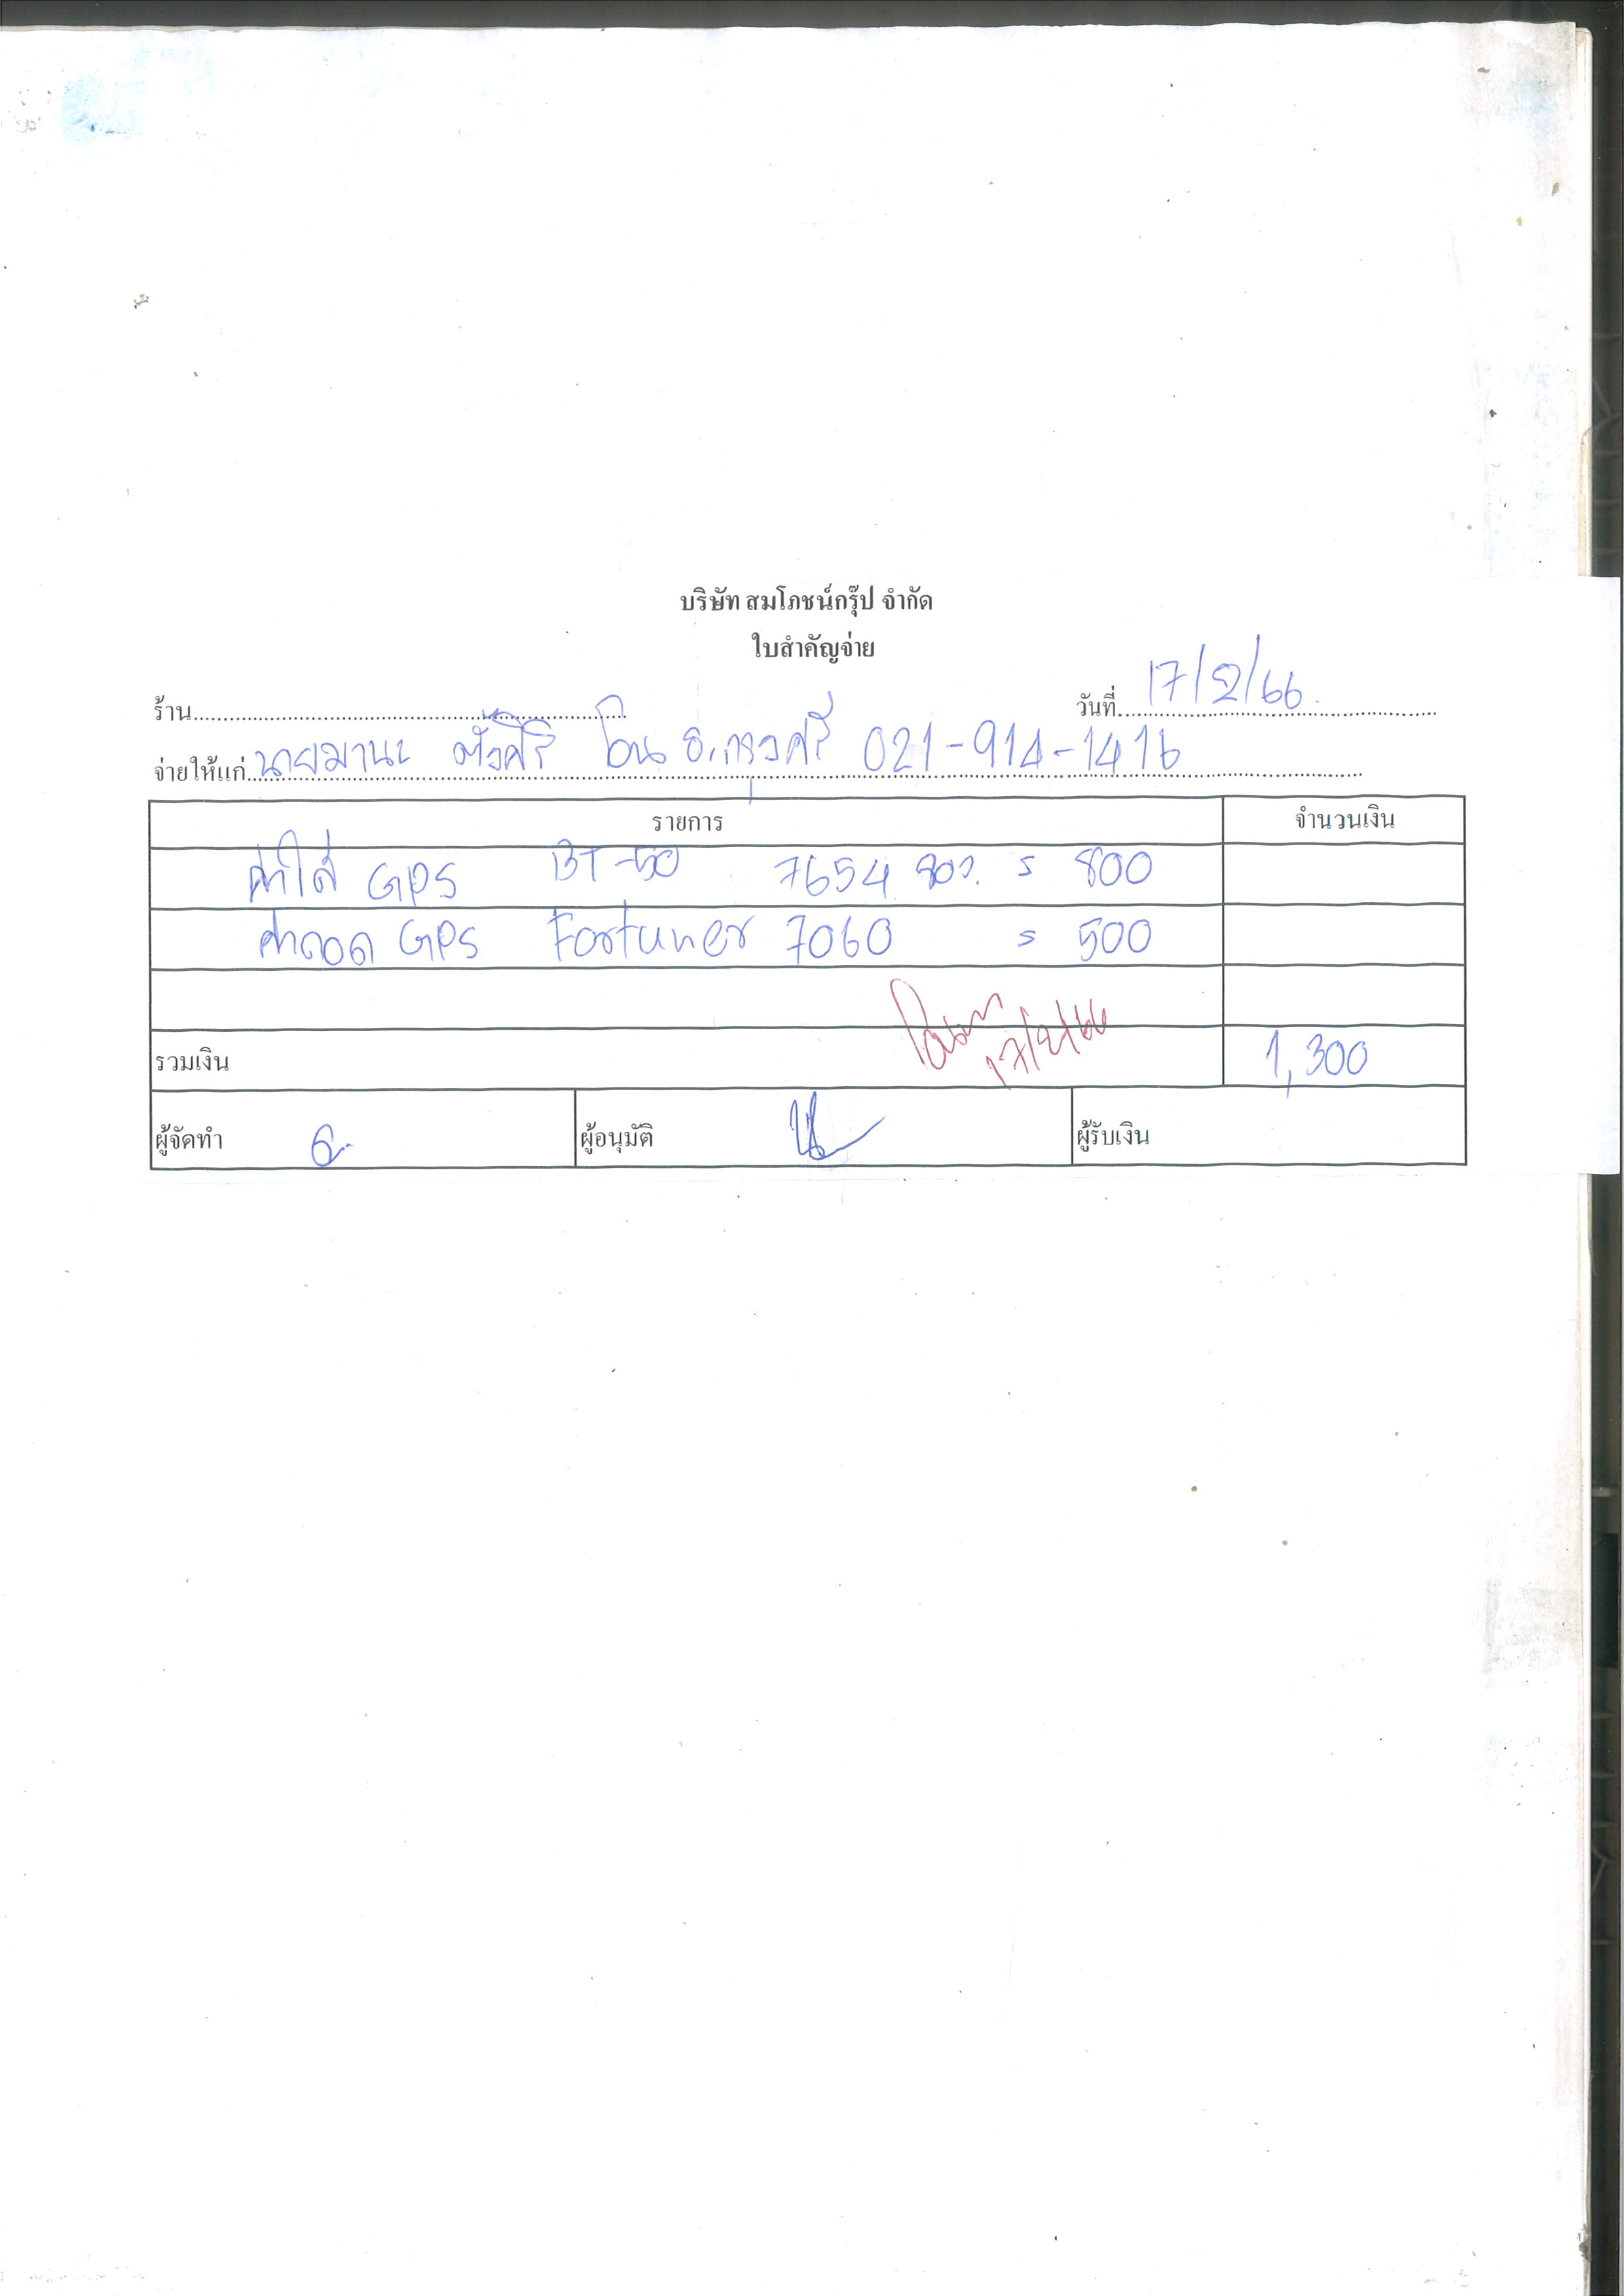 บริษัท สมโภชน์กรุ๊ป จำกัด
ใบสำคัญจ่าย
ร้าน
วันที่ 17/2/66
จ่ายให้แก่ นายมานะ ตั้งศิริ โอน ธ.กรุงศรี 021-914-1416
รายการ จำนวนเงิน
ค่าใส่ GPS BT-50 7654 = 800
ค่าถอด GPS Fortuner 7060 = 500
17/2/66
รวมเงิน 1,300
ผู้จัดทำ ผู้อนุมัติ ผู้รับเงิน